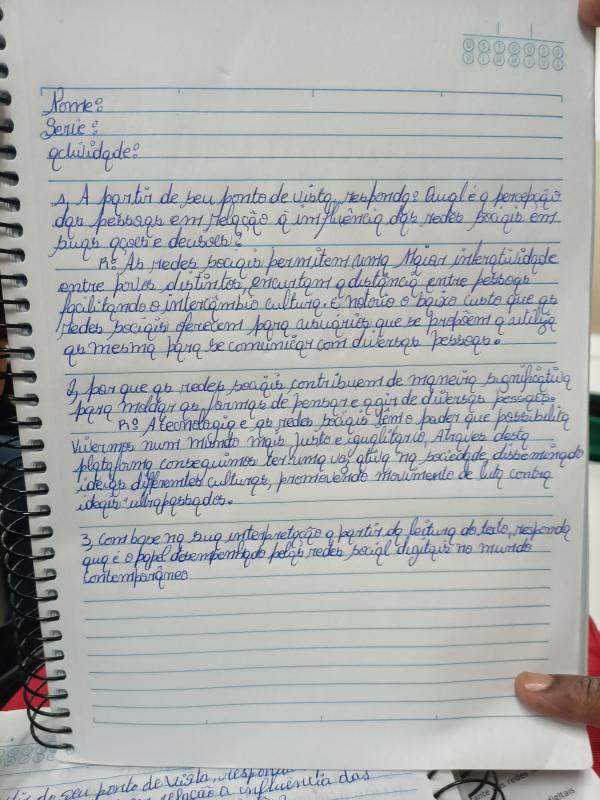 D S T Q Q S S
D L M M J V S
Nome:
Serie:
actividade:
1, A partir de seu ponto de vista, responda: Qual é a percepção
das pessoas em relação a influência das redes sociais em
suas açoes e decisões?
R: As redes sociais permitem uma Maior interatividade
entre povos distintos, encurtam a distância entre pessoas
facilitando o intercâmbio cultura. é notório o baixo custo que as
redes sociais oferecem para usuários que se propõem a utiliza
as mesma para se comunicar com diversas pessoas.
2, por que as redes sociais contribuem de maneira significativa
para moldar as formas de pensar e agir de diversas pessoas.
R: A tecnologia e as redes sociais têm o poder que possibilita
vivermos num mundo mais justo e igualitario, Atraves desta
plataforma conseguimos ter uma voz ativa na sociedade disseminado
ideias diferentes culturas, promovendo movimento de luta contra
ideais "ultrapassados.
3, com base na sua interpretação a partir da leitura do texto, responda
qua é o papel desempenhado pelas redes social digitais no mundo
contemporâneo
seu ponto de vista,
relação a influência das
redes
digitais